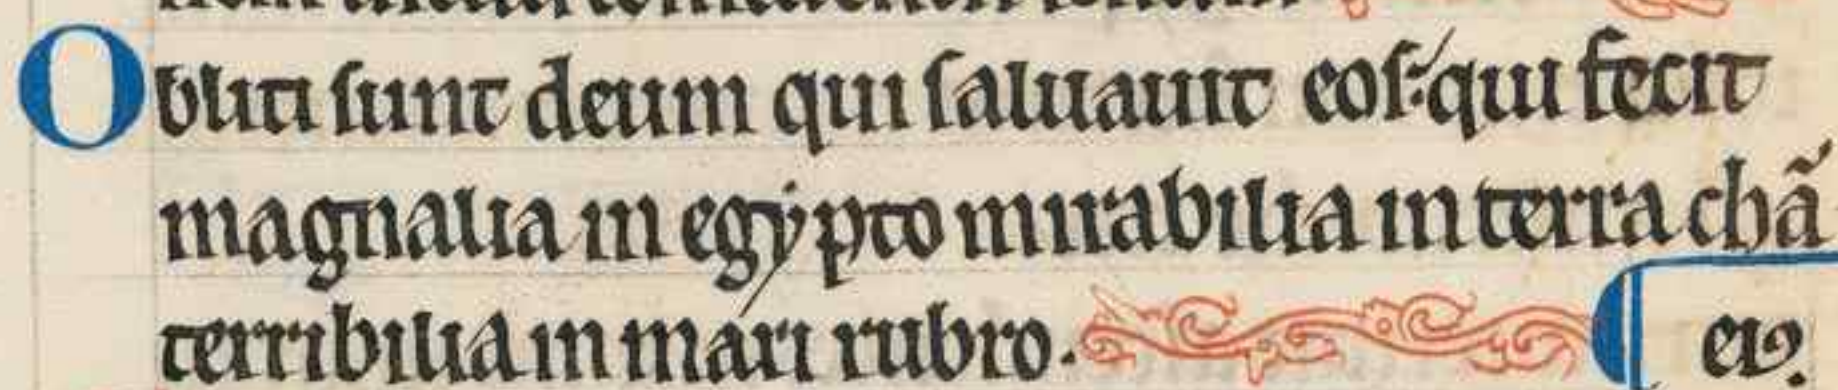 Obliti sunt deum qui saluauit eos: qui fecit
magnalia in egypto mirabilia in terra chã
terribilia in mari rubro.
eiꝰ.